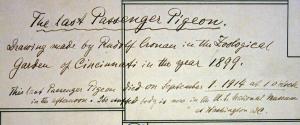 The last Passenger Pigeon.
Drawing made by Rudolf Cronau in the Zoological
Garden of Cincinnati in the year 1899.
This last Passenger Pigeon died on September 1. 1914 at 1 o'clock
in the afternoon. Its stuffed body is now in the U.S. National Museum
at Washington DC.